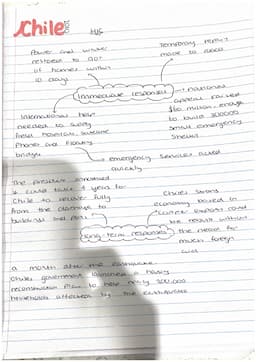 Chile
2010
HIC
Power and water
restored to 90%
of homes within
10 days
Temporary repairs
made to roads
Immediate responses
National
appeal raised
$60 million, enough
to build 30000
small emergency
shelters
International help
needed to supply
field hospitals, satellite
Phones and Floating
bridges
emergency services acted
quickly
The president announced
it could take 4 years for
Chile to recover fully
from the damage to
buildings and ports
Chile's strong
economy based in
copper exports could
be rebuilt without
the need for
much foreign
aid
long term responses
a month after the earthquake
Chiles government launched a housing
reconstruction plan to help nearly 200,000
households affected by the earthquake